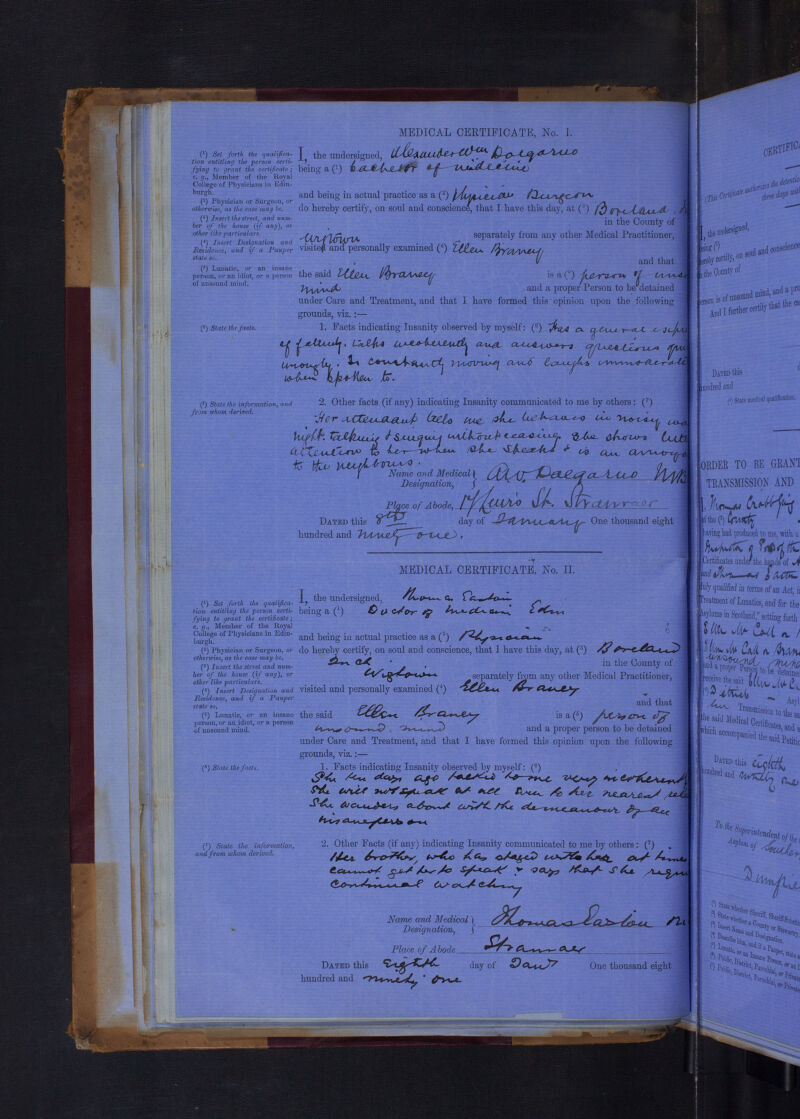 MEDICAL CERTIFICATE, No. I.
(1) Set forth the qualifica-
tion entitling the person certi-
fying to grant the certificate;
e. g., Member of the Royal
College of Physicians in Edin-
burgh.
(2) Physician or Surgeon, or
otherwise, as the case may be.
(3) Insert the street, and num-
ber of the house (if any), or
other like particulars.
(4) Insert Designation and
Residence, and if a Pauper
state so.
(5) Lunatic, or an insane
person, or an idiot, or a person
of unsound mind.
I, the undersigned, Alexander Wm Dalgarno
being a (1) bachelor of medicine
and being in actual practice as a (2) Physician Surgeon
do hereby certify, on soul and conscience, that I have this day, at (3) Boreland
in the County of
Wigtown separately from any other Medical Practitioner,
visited and personally examined (4) Ellen Braney
and that
the said Ellen Braney is a (5) person of uns
mind and a proper Person to be detained
under Care and Treatment, and that I have formed this opinion upon the following
grounds, viz. :—
(6) State the facts.
1. Facts indicating Insanity observed by myself: (6) Has a general
of fatuity. talks incoherently and answers questions
wrongly. Is constantly moving and laughs immoderate
when spoken to.
(7) State the information, and
from whom derived.
2. Other facts (if any) indicating Insanity communicated to me by others: (7)
Her attendant tells me she behaves in noisy
night. talking & singing without ceasing. She shows
attention to her when she speaks & is an annoya
to the neighbours.
Name and Medical Designation, A W. Dalgarno MB
Place of Abode, 17 Lewis St. Stranraer
DATED this 8th day of January One thousand eight
hundred and ninety one.
MEDICAL CERTIFICATE, No. II.
(1) Set forth the qualifica-
tion entitling the person certi-
fying to grant the certificate;
e. g., Member of the Royal
College of Physicians in Edin-
burgh.
(2) Physician or Surgeon, or
otherwise, as the case may be.
(3) Insert the street and num-
ber of the house (if any), or
other like particulars.
(4) Insert Designation and
Residence, and if a Pauper
state so.
(5) Lunatic, or an insane
person, or an idiot, or a person
of unsound mind.
I, the undersigned, Thomas Easton
being a (1) Doctor of Medicine Edin
and being in actual practice as a (2) Physician
do hereby certify, on soul and conscience, that I have this day, at (3) Boreland
Inch in the County of
Wigtown separately from any other Medical Practitioner,
visited and personally examined (4) Ellen Braney
and that
the said Ellen Braney is a (5) person of
unsound mind and a proper person to be detained
under Care and Treatment, and that I have formed this opinion upon the following
grounds, viz. :—
(6) State the facts.
1. Facts indicating Insanity observed by myself: (6)
She ten days ago talked to me very incoherent
She will not speak at all even to her nearest rel
She wanders about with the demeanour of an
insane person
(7) State the information,
and from whom derived.
2. Other Facts (if any) indicating Insanity communicated to me by others: (7)
Her brother, who has stayed with her at times
cannot get her to speak & says that she requi
continual watching
Name and Medical Designation, Thomas Easton
Place of Abode Stranraer
DATED this Eighth day of Jany One thousand eight
hundred and ninety one
CERTIFICA
I, the undersigned,
hereby certify, on soul and conscience
in the County of
person is of unsound mind, and a pro
And I further certify that the
DATED this
hundred and
(2) State medical qualification.
ORDER TO BE GRANT
TRANSMISSION AND
I, Thomas
of the (2) County
having had produced to me, with a
Inspector of Poor of the
Certificates under the hands of A
and Thomas Easton
duly qualified in terms of an Act,
Treatment of Lunatics, and for the
Asylums in Scotland," setting forth
unsound mind
and a proper Person to be detained
receive the said Ellen
District
Transmission to the
the said Medical Certificates, and
which accompanied the said Petiti
DATED this eighth
hundred and ninety one
To the Superintendent of the
Asylum of
Dumfries